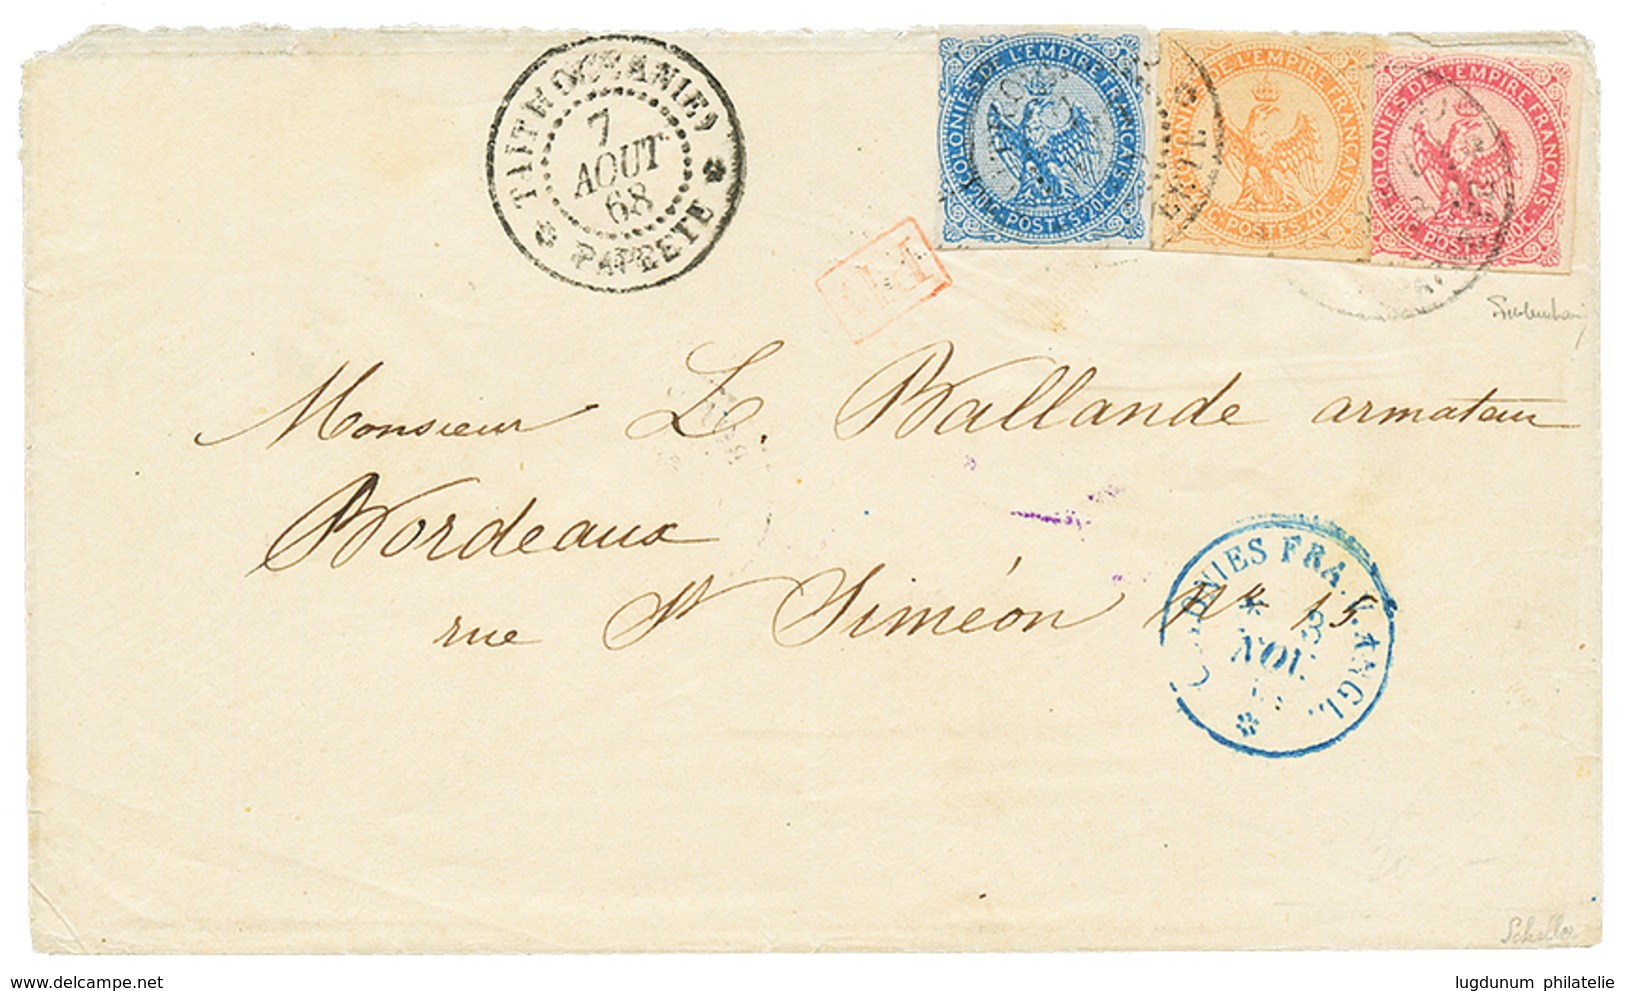 TAITI (OCEANIE)
7
AOUT
68
PAPEETE
COLONIES DE L'EMPIRE FRANÇAIS
20c. POSTES 20c.
DE L'EMPIRE FRANÇAIS
POSTES 40c.
COLONIES DE L'EMPIRE FRANÇAIS
POSTES
P.D.
Monsieur L. Ballande armateur
Bordeaux
rue St Siméon No 15
COLONIES FRA. V. ANGL.
3
NOV.
Scheller
lugdunum philatelie